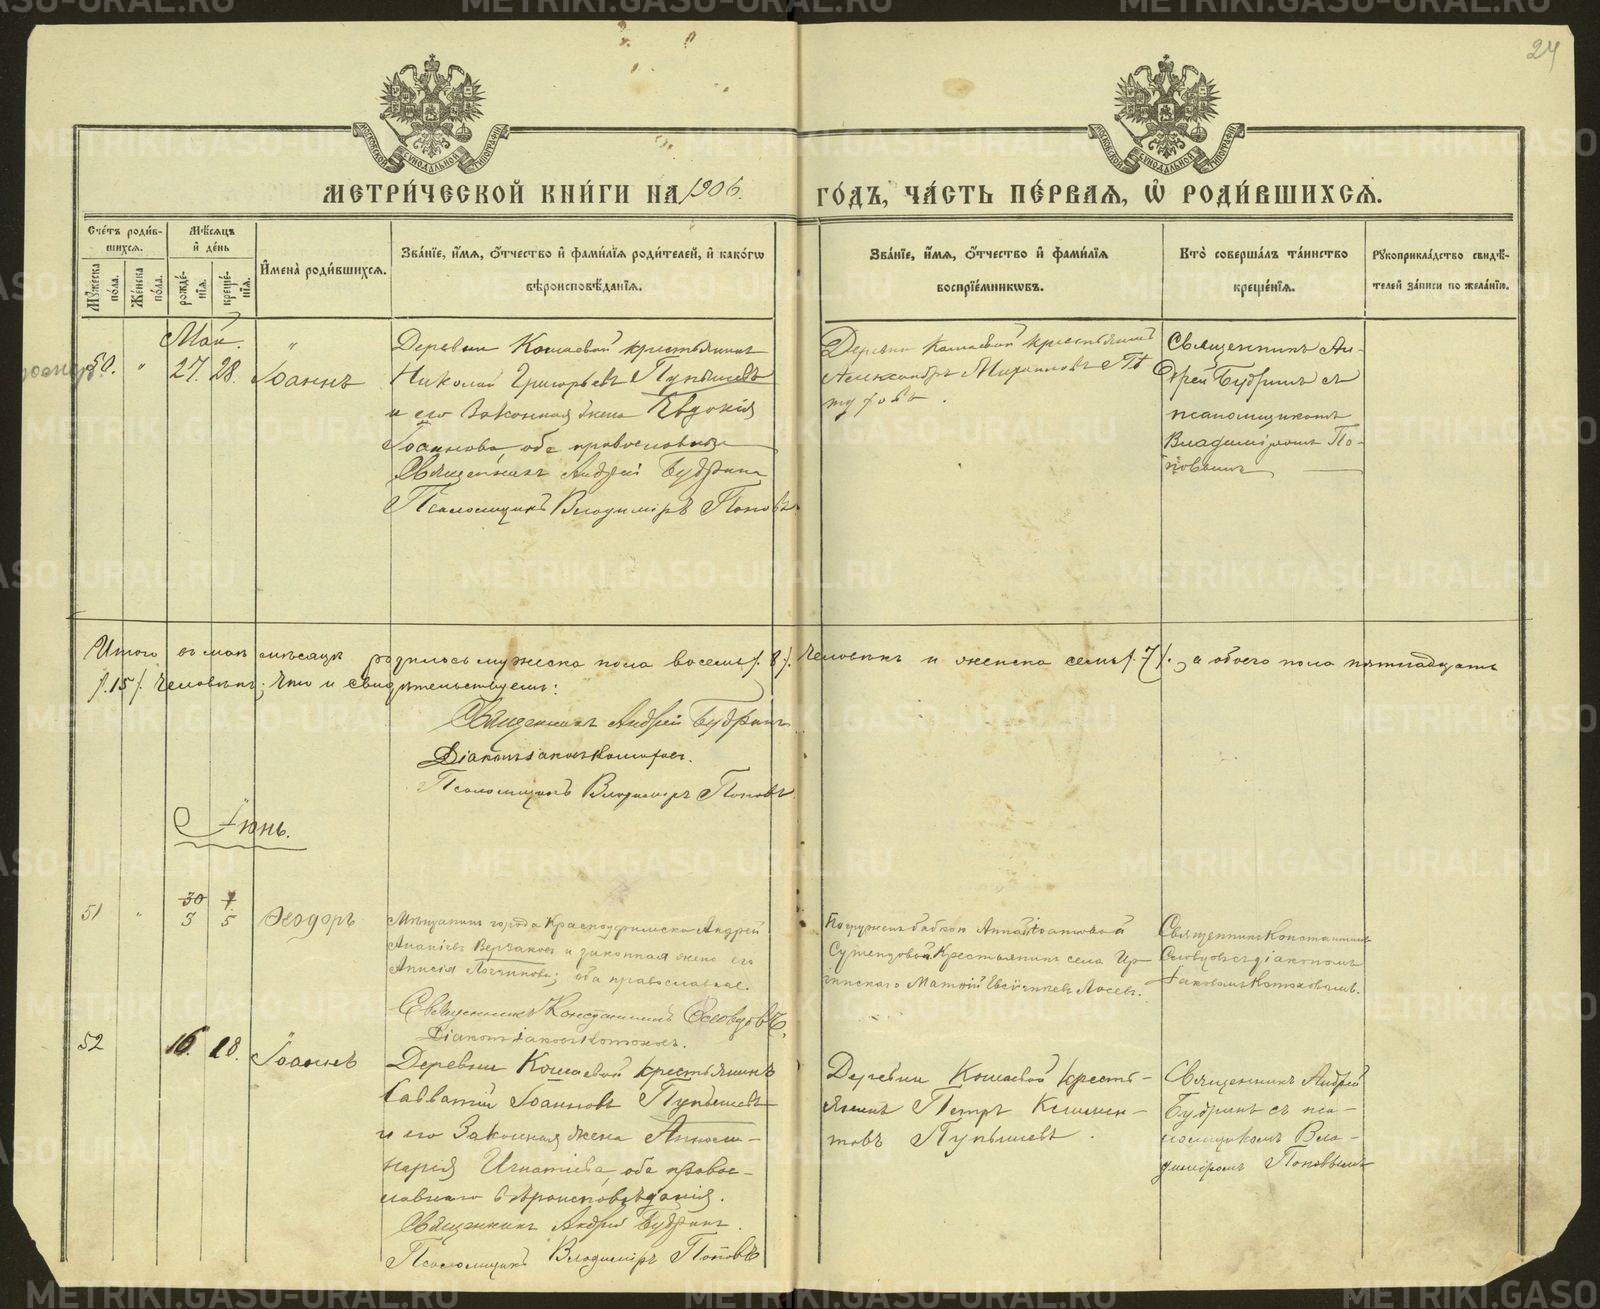 24
МЕТРИ́ЧЕСКОЙ КНИ́ГИ НА 1906.
ГО́ДЪ, ЧА́СТЬ ПЕ́РВАЯ, Ѡ РОДИ́ВШИХСЯ.
Сче́тъ роди́в-
шихся.
Мꙋ́жеска
по́ла.
Же́нска
по́ла.
Мѣ́сяцъ
и҆ де́нь
рожде́-
нїя.
креще́-
нїя.
И҆мена̀ роди́вшихся.
Зва́нїе, и҆́мя, ѻ҆́тчество и҆ фами́лїя роди́телей, и҆ како́гѡ
вѣроисповѣ́данїя.
Зва́нїе, и҆́мя, ѻ҆́тчество и҆ фами́лїя
воспрїе́мникѡвъ.
Кто̀ соверша́лъ та́инство
креще́нїя.
Рꙋкоприкла́дство свидѣ́-
телей за́писи по жела́нїю.
Май.
50. " 27. 28. Іоаннъ
Деревни Кошаевой крестьянинъ
Николай Григорьевъ Пупышевъ
и его законная жена Евдокія
Іоаннова, оба православные
Священникъ Андрей Будринъ
Псаломщикъ Владиміръ Поповъ
Деревни Кошаевой крестьянинъ
Александръ Михаиловъ
Священникъ Ан-
дрей Будринъ съ
псаломщикомъ
Владиміромъ По-
повымъ
Итого въ маѣ мѣсяцѣ родилось мужеска пола восемь /.8/. человѣкъ и женска семь /.7/., а обоего пола пятнадцать
/.15/. человѣкъ; что и свидѣтельствуемъ:
Священникъ Андрей Будринъ
Діаконъ Іаковъ
Псаломщикъ Владиміръ Поповъ.
Іюнь.
30 1.
51 " 3 5 Ѳеодоръ
Мѣщанинъ города Красноуфимска Андрей
Ананіевъ и законная жена его
Анисія оба православные.
Священникъ Константинъ Словцовъ.
Діаконъ Іаковъ
Анна
крестьянинъ села Ир-
гинскаго Лосевъ.
Священникъ Константинъ
Словцовъ съ діакономъ
Іаковомъ
52 16. 18. Іоаннъ
Деревни Кошаевой крестьянинъ
Савватій Іоанновъ Пупышевъ
и его законная жена Аполли-
нарія Игнатіева, оба правос-
лавнаго вѣроисповѣданія.
Священникъ Андрей Будринъ.
Псаломщикъ Владиміръ Поповъ
Деревни Кошаевой кресть-
янинъ Петръ Климен-
товъ Пупышевъ.
Священникъ Андрей
Будринъ съ пса-
ломщикомъ Вла-
диміромъ Поповымъ